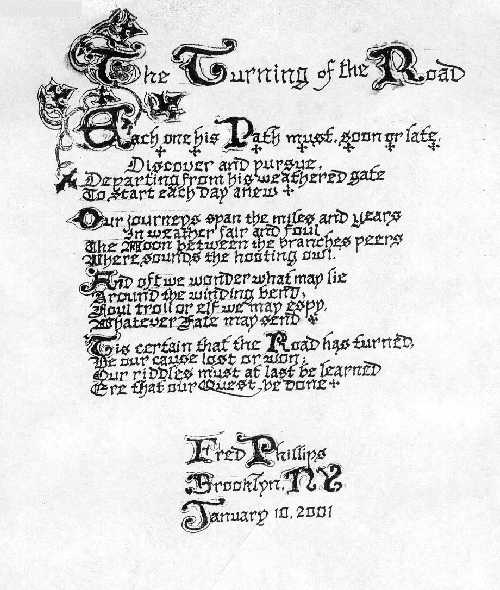 The Turning of the Road
Each one his Path must, soon or late,
Discover and pursue,
Departing from his weathered gate
To start each day anew
Our journeys span the miles and years
In weather fair and foul
The Moon between the branches peers
Where sounds the hooting owl.
And oft we wonder what may lie
Around the winding bend,
Foul troll or elf we may espy,
Whatever Fate may send
Tis certain that the Road has turned,
Be our cause lost or won;
Our riddles must at last be learned
Ere that our Quest, be done
Fred Phillips
Brooklyn, NY
January 10, 2001